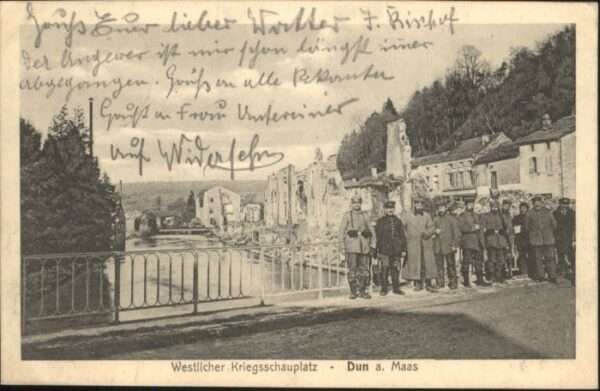 Gruß Euer lieber Walter J. Bischof
Der Angever ist mir schon längst immer
abgegangen. Gruß an alle Bekannten
Gruß an Frau Untereiner
auf Wiedersehn
Westlicher Kriegsschauplatz - Dun a. Maas